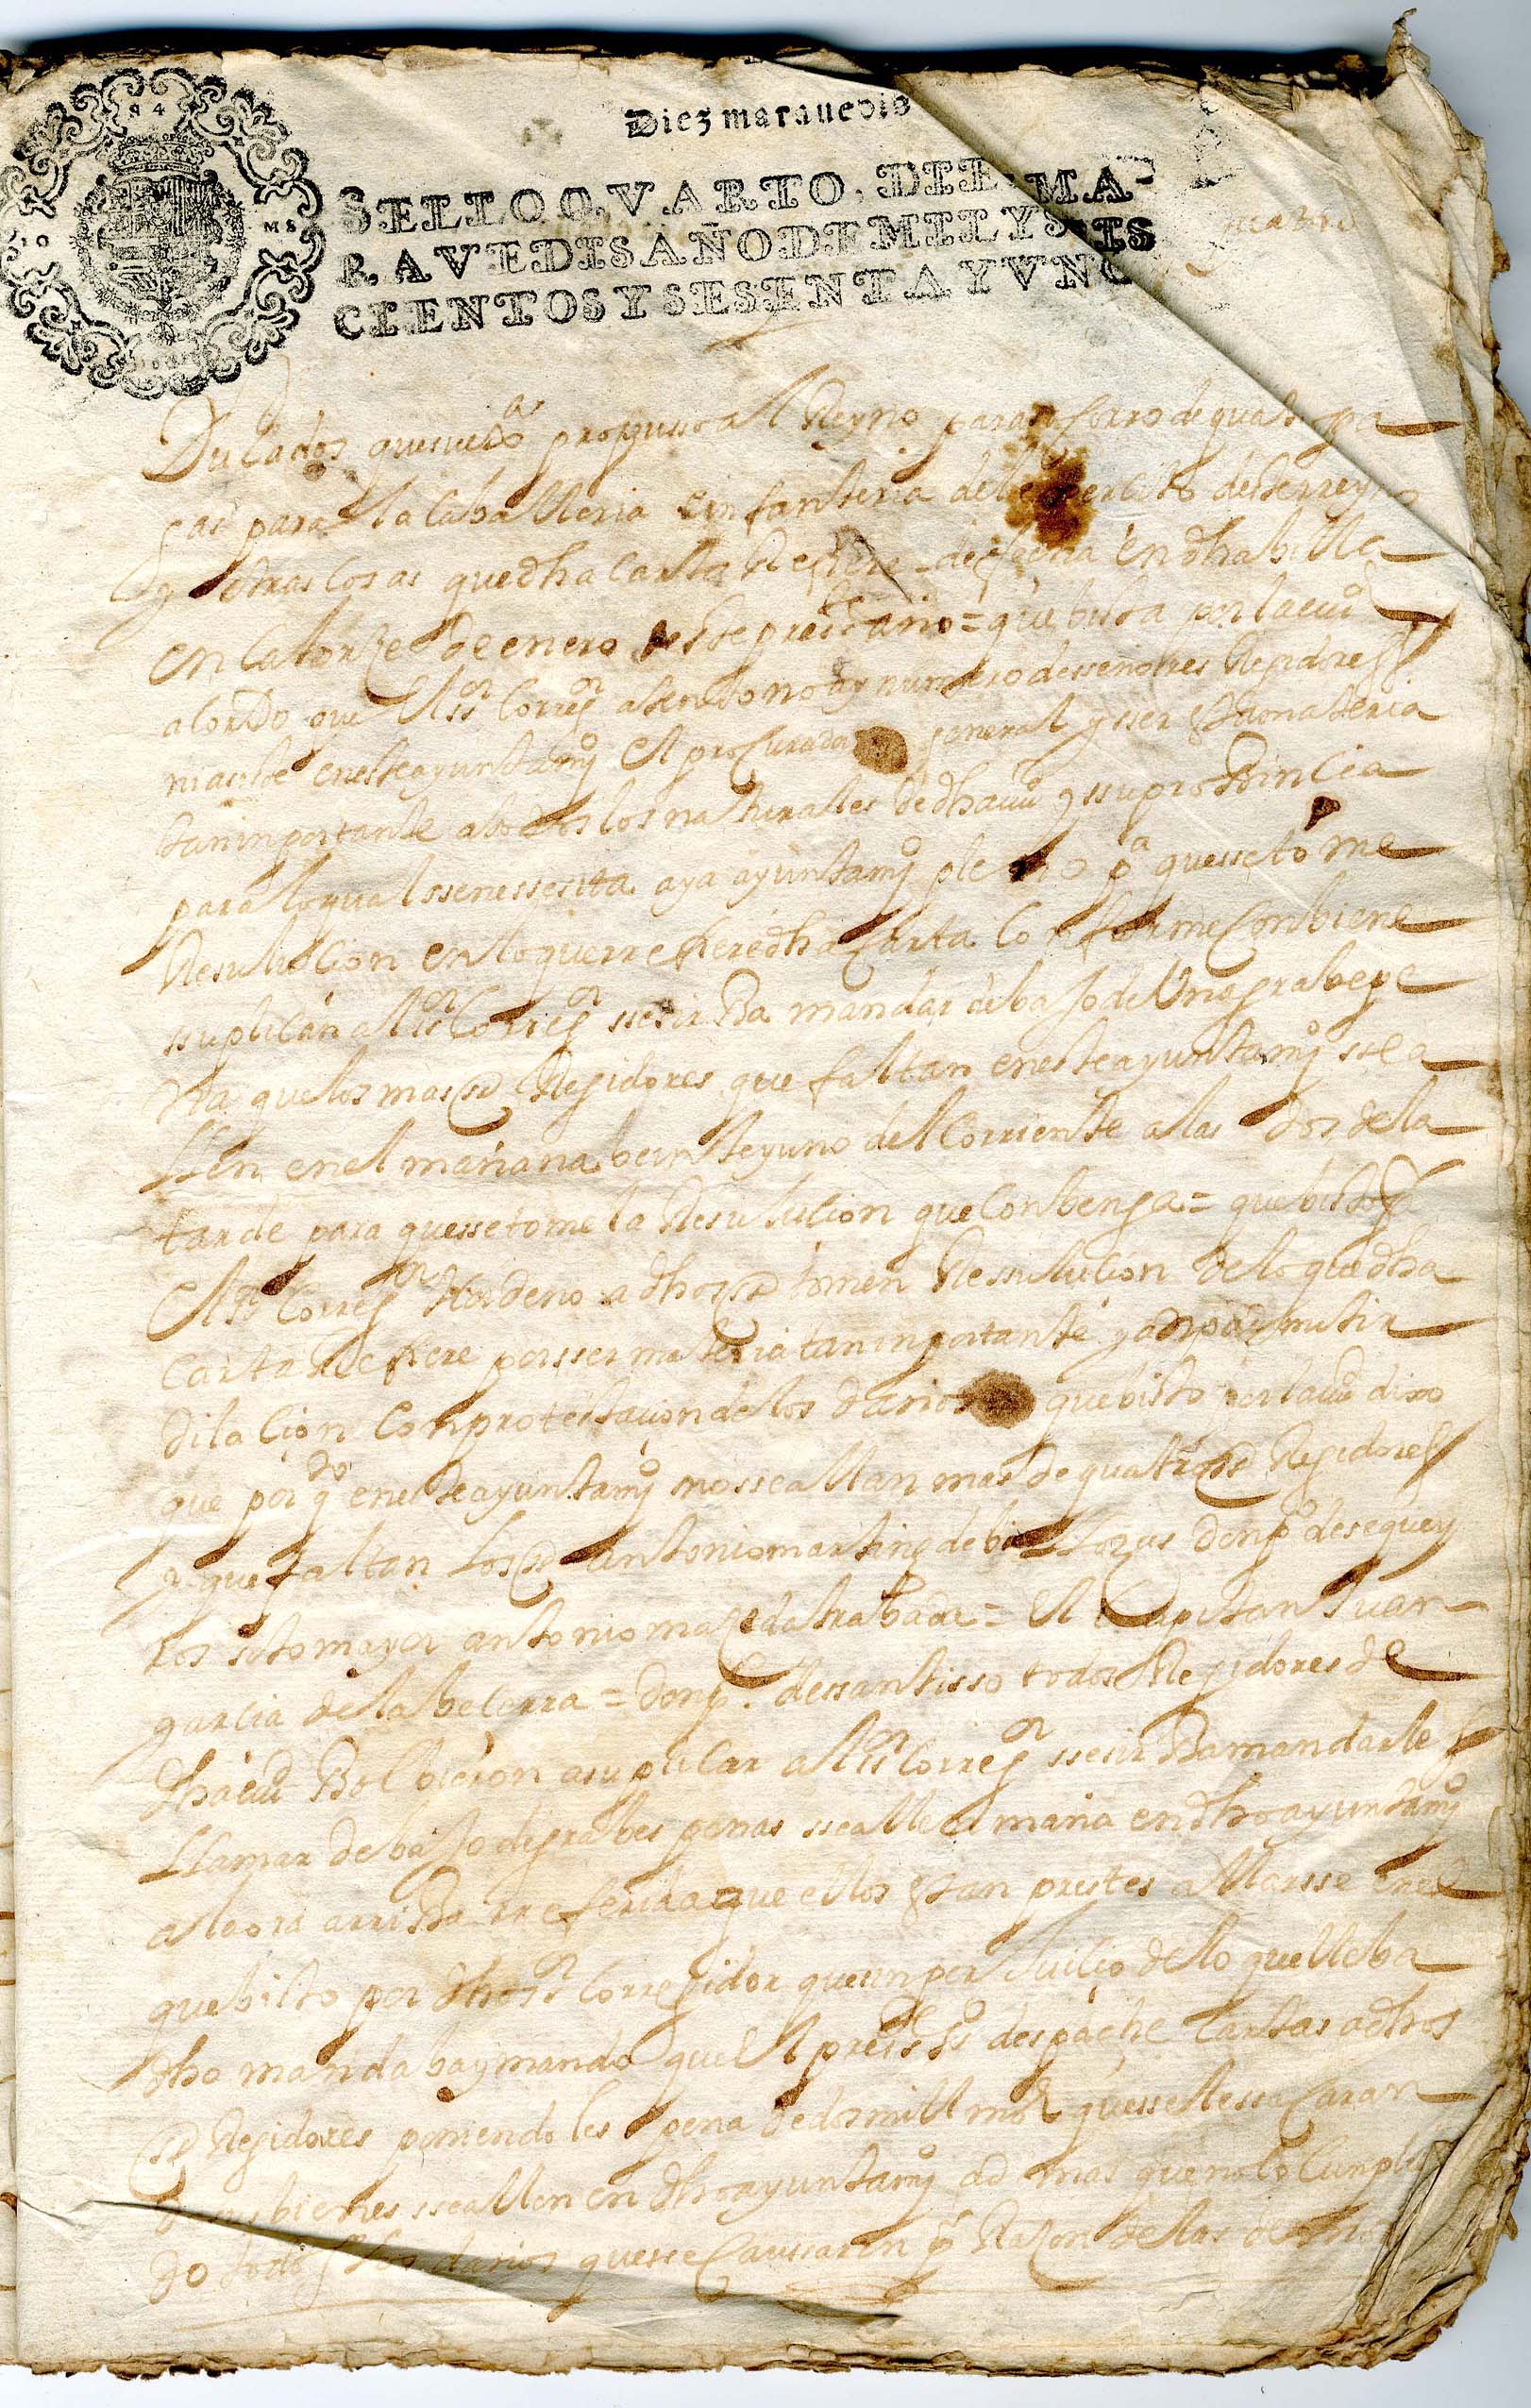 Diez marauedis
SELLO QVARTO, DIEZ MA-
RAVEDIS AÑO DE MIL Y SEIS
CIENTOS Y SESENTA Y VNO
Ducados que su ex.ª propusso al Reyno para
gas para la Caballeria e infanteria del exercito deste rreyno
y otras cosas que dha carta Refiere de fecha en dha billa
en catorze de enero deste presste año = que bista por la ciud
acordo que el ssr Corregr atento no ay numero de señores Regidores
mas de en este ayuntamio el procurador general y sser esta materia
tan inportante a todos los naturalles de dha ciud y ssu proBincia
para lo qual sse nessesita aya ayuntamio pleno pa que sse tome
Resulucion en lo que rrefiere dha Carta Conforme Conbiene
ssuplican al ssr Corregr sse sirBa mandar debajo de Una grabe pe
na que los mas ss Regidores que faltan en este ayuntamio sse a
llen en el mañana beinte y uno del Corriente a las dos de la
tarde para que sse tome la Resulucion que Conbenga = que bisto por
el ssr Corregr Hordeno a dhos ss tomen Ressulucion de lo que dha
carta Refiere por sser materia tan inportante y no admitir
dilacion Con protestacion de los daños que bisto por la ciud dixo
que por qdo en este ayuntamio no sse allan mas de quatro ss Regidores
y que faltan los ss antonio martinez de don po desequey
ros sotomayor antonio maceda trabada = el Capitan Juan
garcia de la becerra = don po. dessantisso todos Regidores de
dha ciud Bolbieron a suplicar al ssr Corregr sse sirBa mandarles
LLamar debajo de grabes penas sse allen mañana en dho ayuntamio
a la ora arriBa rreferida que ellos estan prestes a allarsse en el
que bisto por dho ssr Corregidor que sin perJuicio de lo que lleba
dho mandaba y mando que el presste sso despache Cartas a dhos
ss Regidores poniendoles pena de dos mill mrs que sse les sacaran
de sus bienes sse allen en dho ayuntamio ad mas que no lo Cunplien
do todos los daños que sse Caussaren por Razon de las